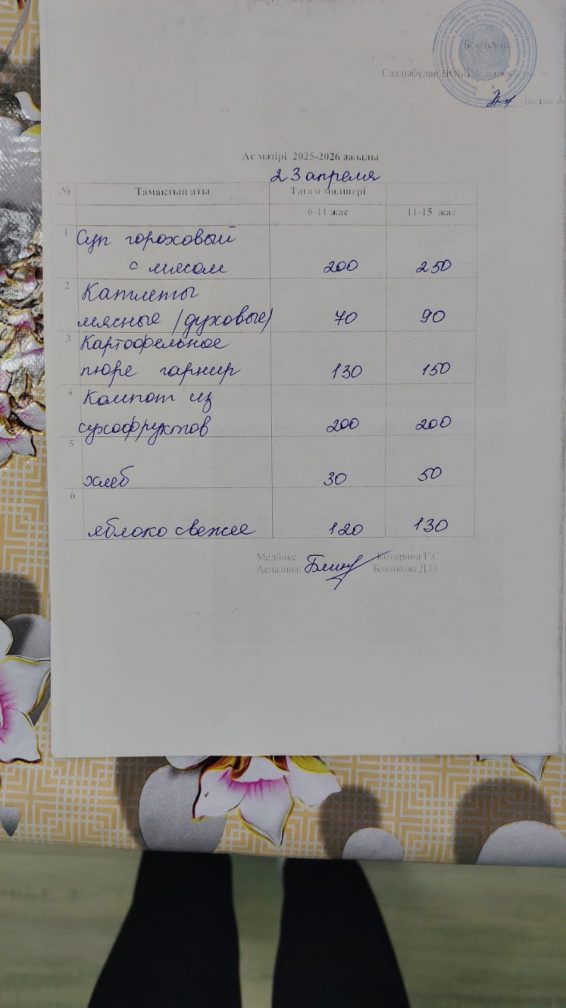 Ас мәзірі 2025-2026 жжылы
23 апреля
№ Тамақтын аты Тағам мөлшері
6-11 жас 11-15 жас
1 Суп гороховый
с мясом 200 250
2 Катлеты
мясные (духовые) 70 90
3 Картофельное
пюре гарнир 130 150
4 Компот из
сухофруктов 200 200
5
хлеб 30 50
6
яблоко свежее 120 130
Медбике: Которина Г.С
Аспазшы: Баникова Д.П